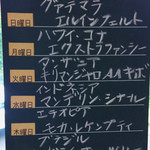 グァテマラ
エルインフェルト
月曜日
ハワイ・コナ
エクストラファンシー
火曜日
タンザニア
キリマンジャロAAキボ
水曜日
インドネシア
マンデリン・シナール
エチオピア
木曜日
モカ・レケンプティ
ブラジル